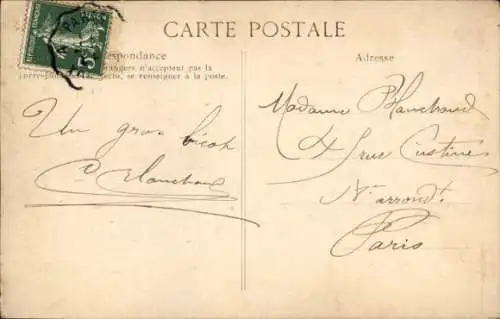 CARTE POSTALE
respondance
Adresse
rangers n'acceptent pas la
se renseigner à la poste.
5
Un gros
Blanchaud
Madame Blanchaud
4 rue Custine
arrond.t
Paris